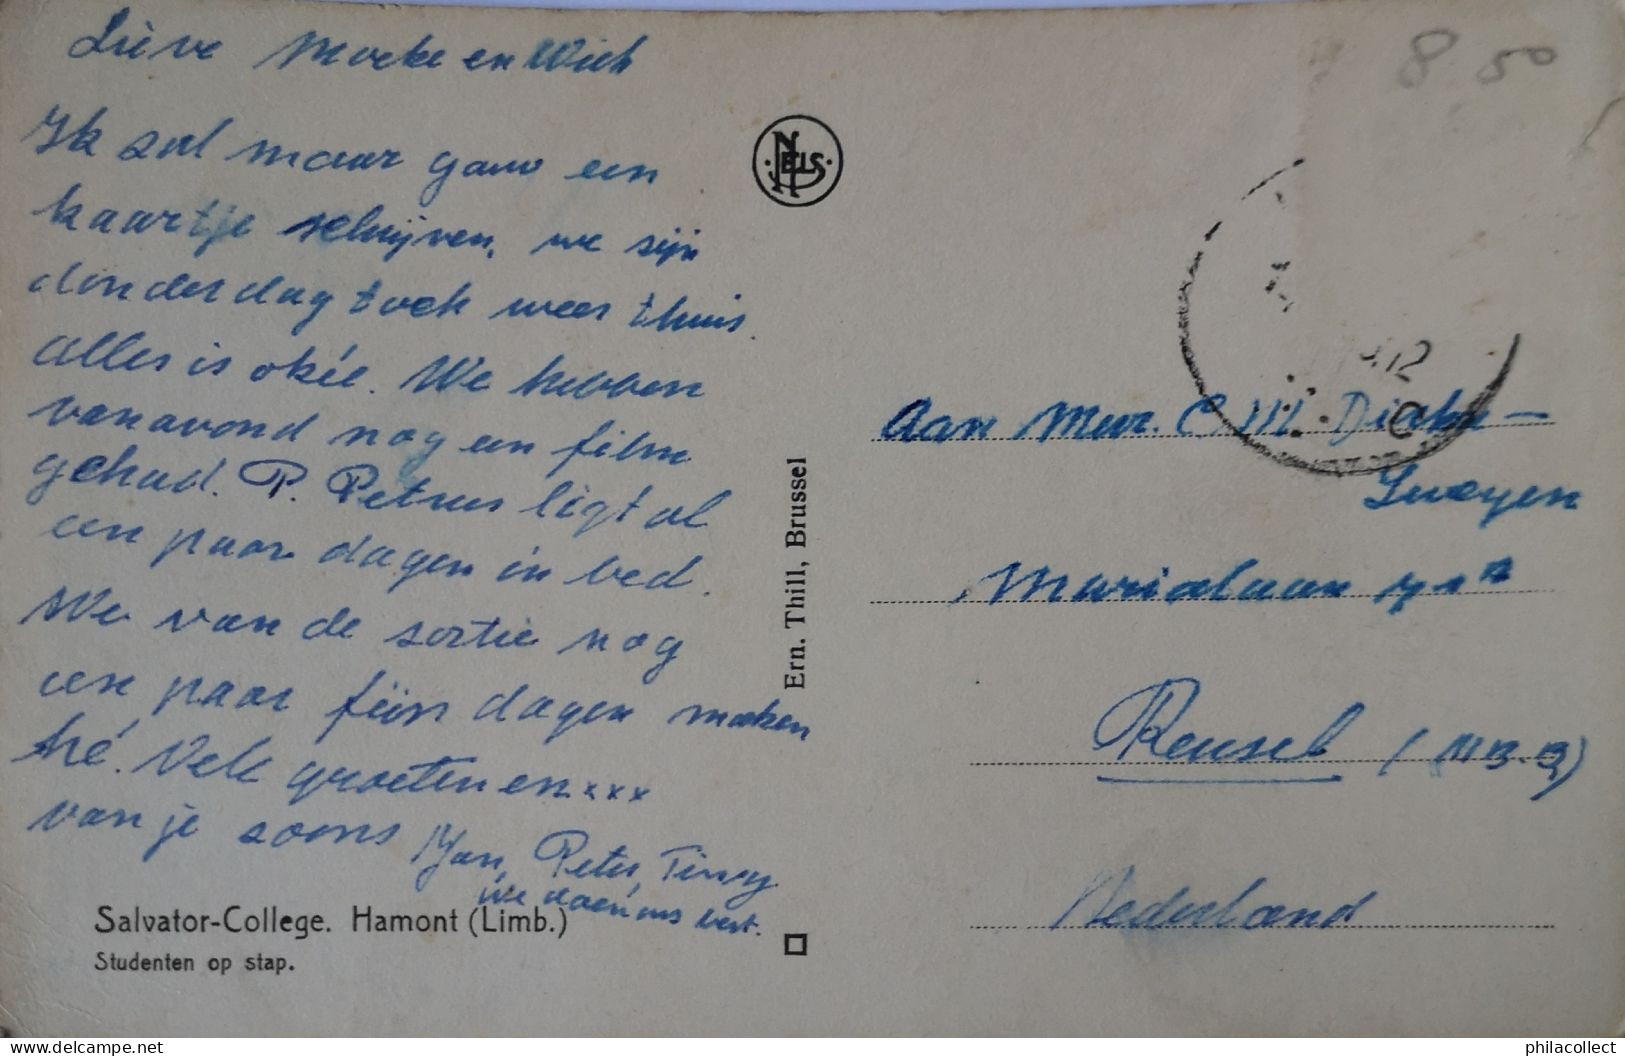 Lieve Moeke en Wieh
Ik zal maar gauw een
kaartje schrijven, we zijn
donderdag toch weer thuis.
alles is okée. We hebben
vanavond nog een film
gehad. P. Petrus ligt al
een paar dagen in bed.
We van de sortie nog
een paar fijn dagen maken
hé. Vele groeten en xxx
van je zoons Jan, Peter,
we doen ons best.
Salvator-College. Hamont (Limb.)
Studenten op stap.
NELS
Ern. Thill, Brussel
8 50
12
Aan Mevr. C M
Marialaan
Reusel (N.B.)
Nederland
philacollect